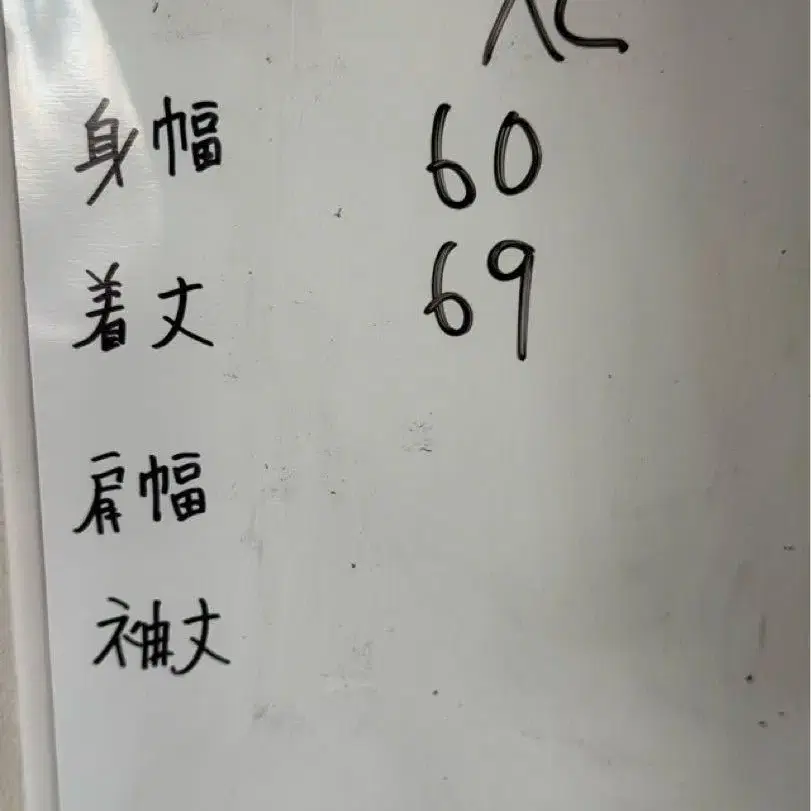 身幅 60
着丈 69
肩幅
袖丈